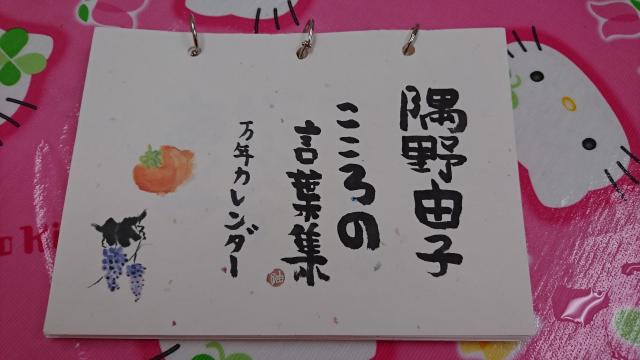 隅野由子
こころの
言葉集
万年カレンダー